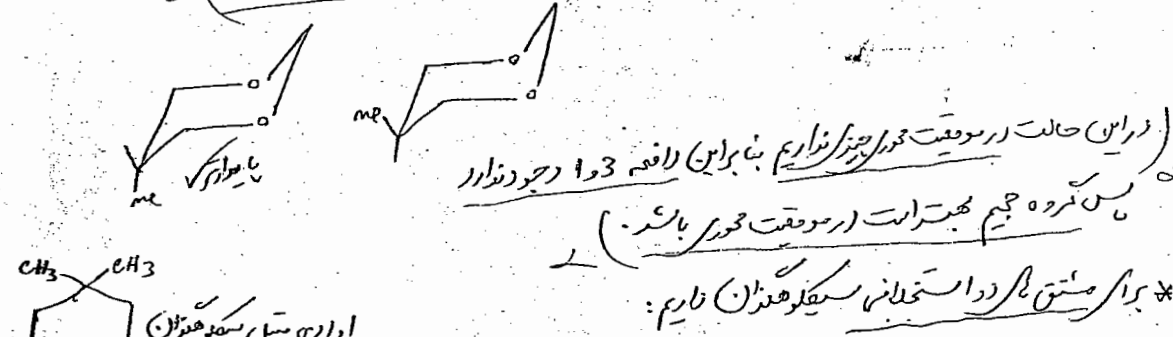 O
O
me
پایدارتر ✓
O
O
me
(در این حالت در موقعیت محوری چیزی نداریم بنابراین دافعه 3و1 وجود ندارد
پس گروه حجیم بهتر است در موقعیت محوری باشد.)
* برای مشتق های دو استخلافی سیکلوهگزان داریم:
CH3 CH3
سیکلوهگزان